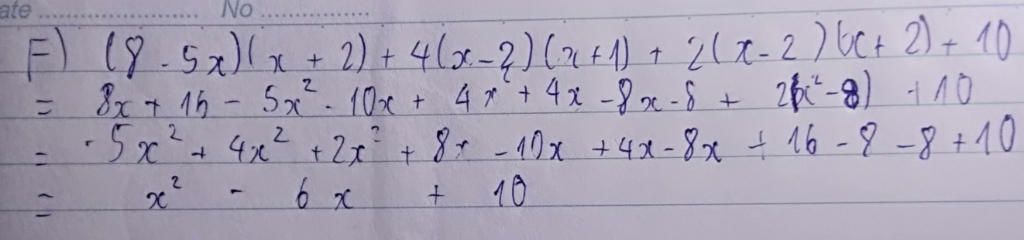 ate ........................ No ...................
F) (8 - 5x)(x + 2) + 4(x-2)(x+1) + 2(x-2)(x+2) + 10
= 8x + 16 - 5x² - 10x + 4x² + 4x - 8x - 8 + 2(x² - 8) + 10
= -5x² + 4x² + 2x² + 8x - 10x + 4x - 8x + 16 - 8 - 8 + 10
= x² - 6x + 10